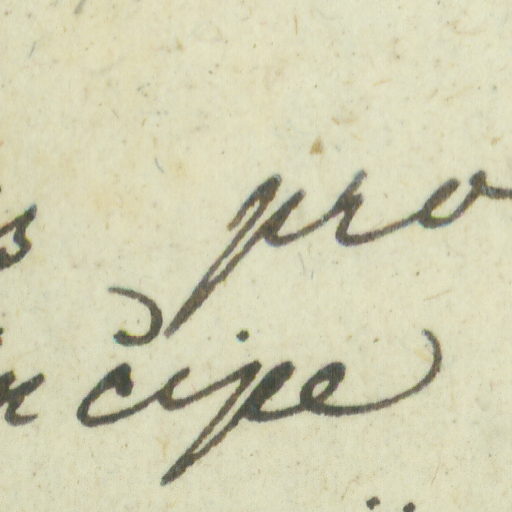 s pro
ncipe